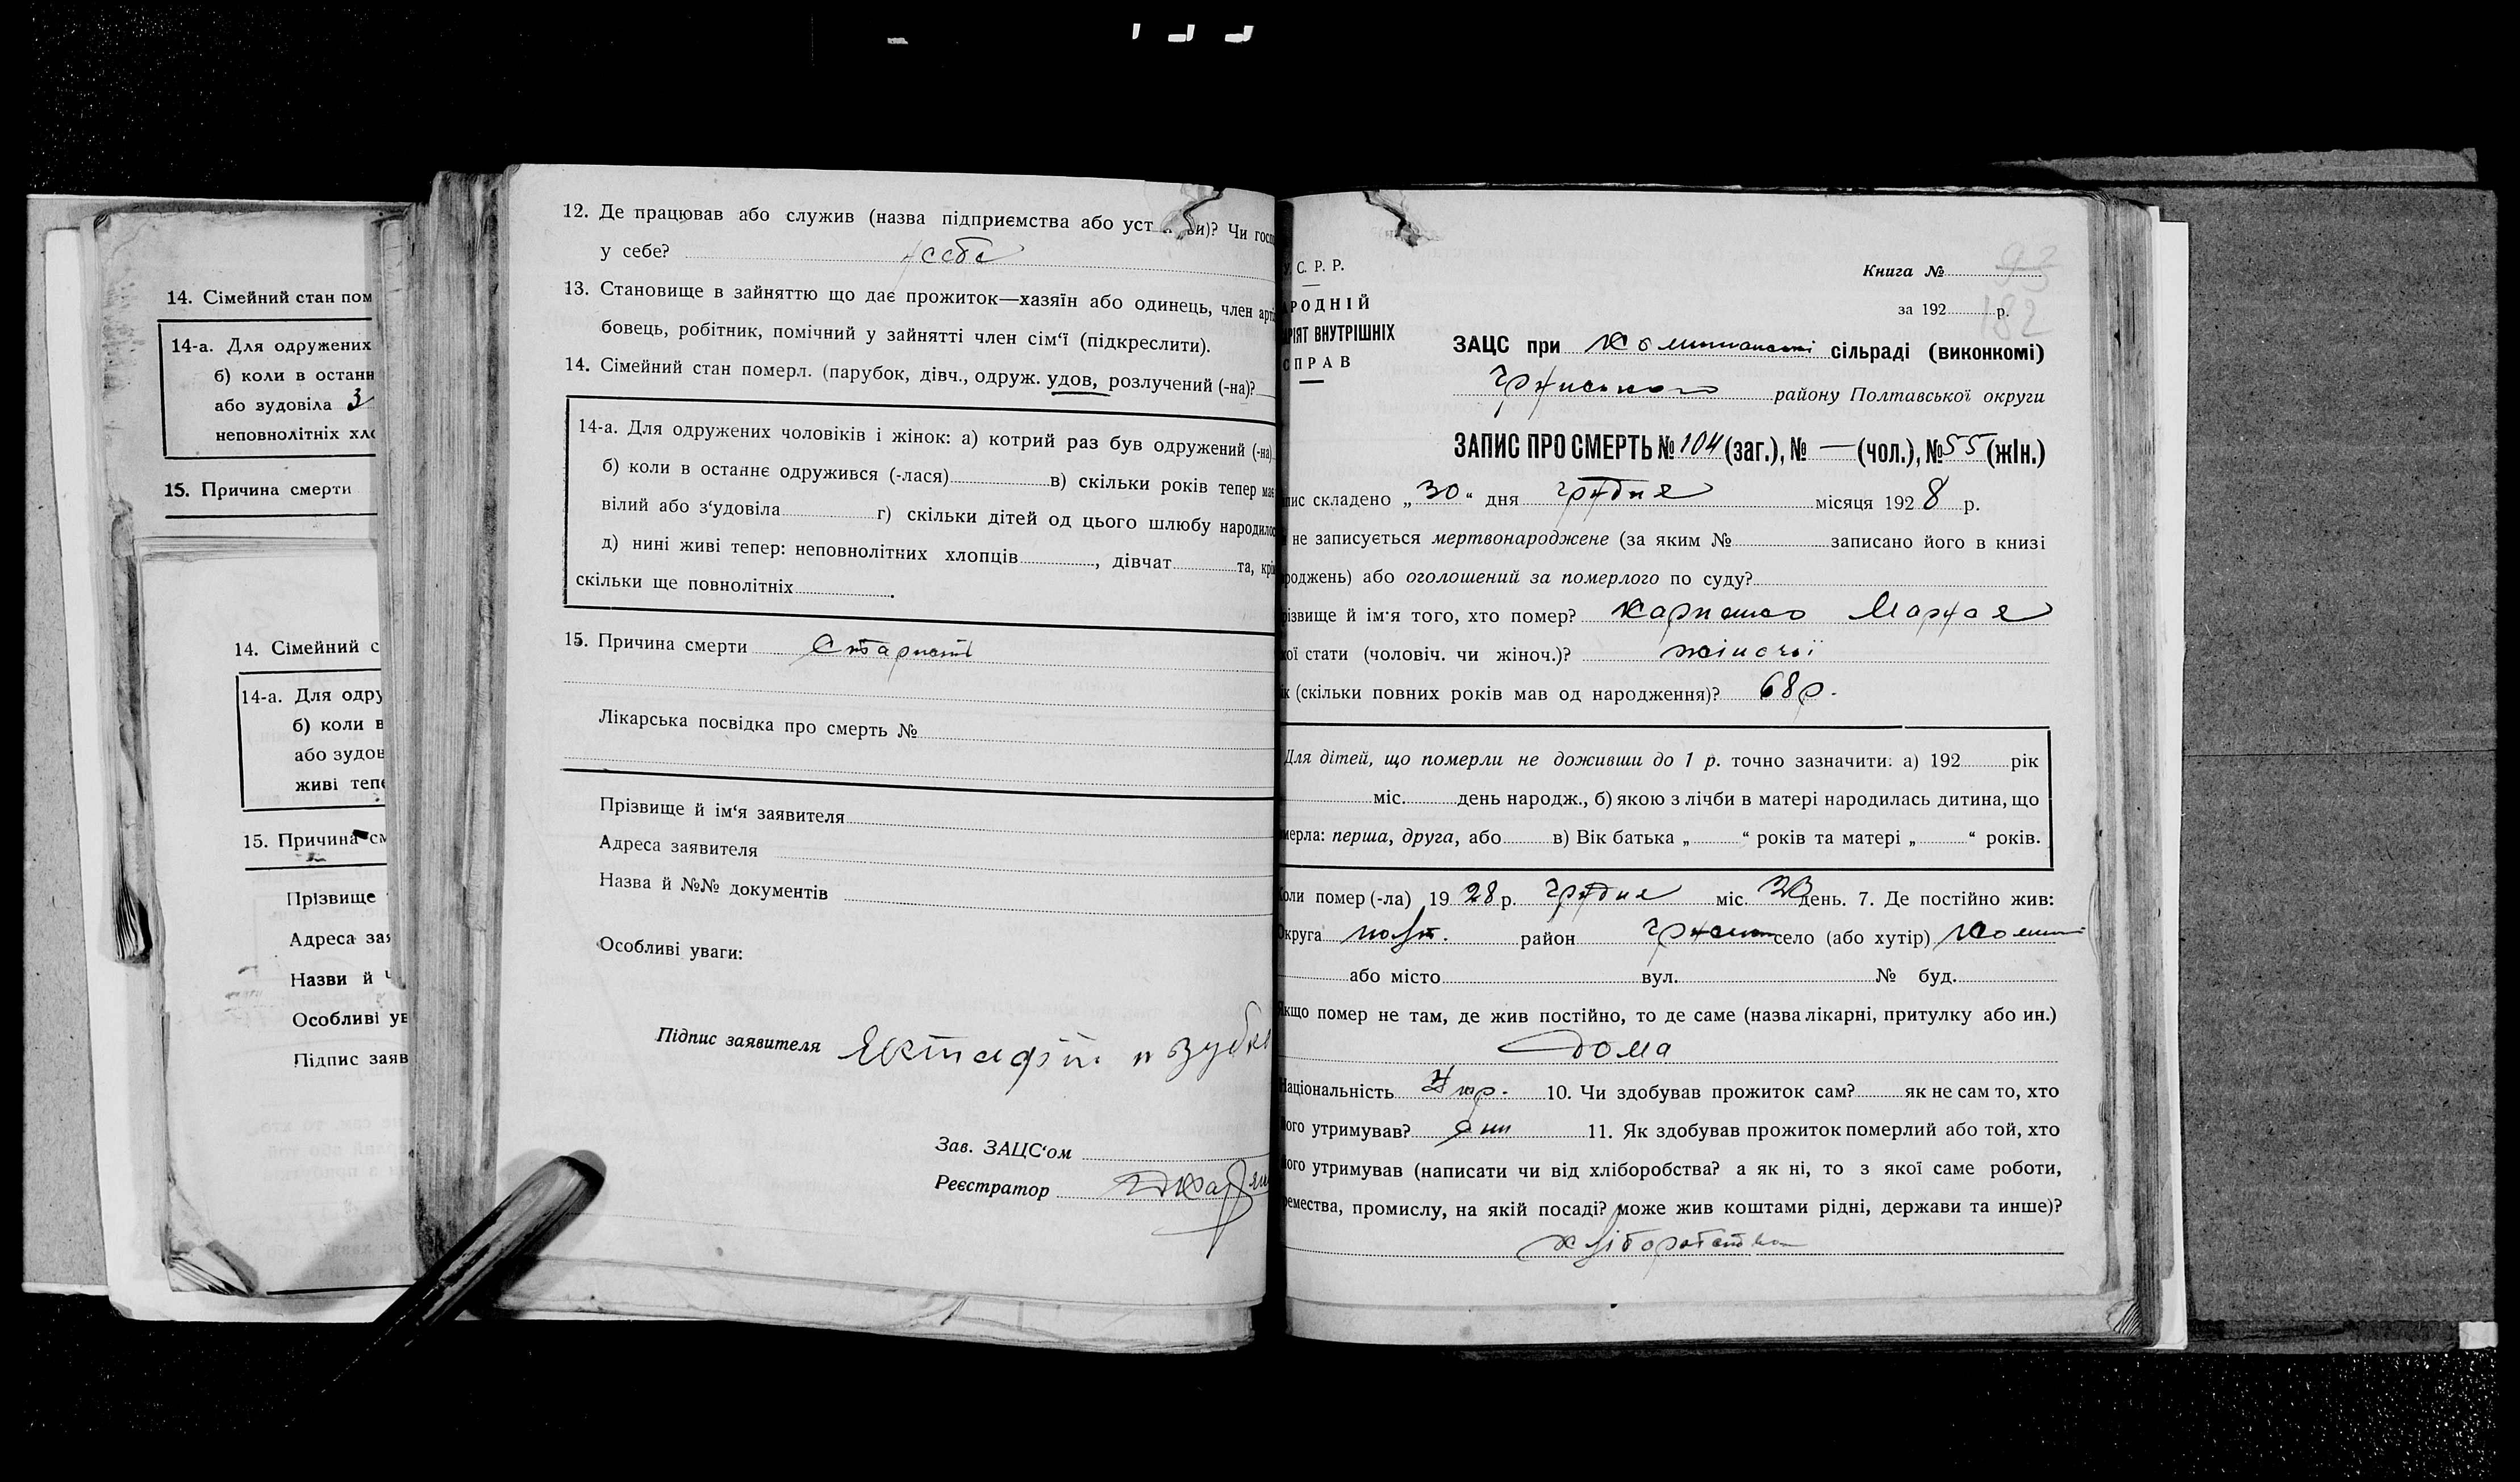 14. Сімейний стан пом
14-а. Для одружених
б) коли в останн
або зудовіла З
неповнолітніх хло
15. Причина смерти
14. Сімейний с
14-а. Для одру
б) коли в
або зудов
живі тепе
15. Причина см
Прізвище
Адреса зая
Назви й
Особливі ув
Підпис заяв
12. Де працював або служив (назва підприємства або уст ви)? Чи госп
у себе? у себе
13. Становище в зайняттю що дає прожиток—хазяїн або одинець, член арт
бовець, робітник, помічний у зайнятті член сім‘ї (підкреслити).
14. Сімейний стан померл. (парубок, дівч., одруж. удов, розлучений (-на)?
14-а. Для одружених чоловіків і жінок: а) котрий раз був одружений (-на)
б) коли в останнє одружився (-лася) в) скільки років тепер має
вілий або з‘удовіла г) скільки дітей од цього шлюбу народилос
д) нині живі тепер: неповнолітних хлопців , дівчат та, крім
скільки ще повнолітніх .
15. Причина смерти Старист
Лікарська посвідка про смерть №
Прізвище й ім‘я заявителя
Адреса заявителя
Назва й №№ документів
Особливі уваги:
Підпис заявителя
Зав. ЗАЦС‘ом
Реєстратор
У. С. Р. Р.
АРОДНІЙ
РІЯТ ВНУТРІШНІХ
СПРАВ
Книга № 93
182
за 192 р.
ЗАЦС при сільраді (виконкомі)
Грунського району Полтавської округи
ЗАПИС ПРО СМЕРТЬ № 104 (заг.), № — (чол.), № 55 (жін.)
пис складено „30“ дня грудня місяця 1928 р.
не записується мертвонароджене (за яким № записано його в книзі
роджень) або оголошений за померлого по суду?
різвище й ім‘я того, хто помер? Карпенко
кої стати (чоловіч. чи жіноч.)? жіночої
ік (скільки повних років мав од народження)? 68 р.
Для дітей, що померли не доживши до 1 р. точно зазначити: а) 192 рік
міс. день народж., б) якою з лічби в матері народилась дитина, що
мерла: перша, друга, або в) Вік батька „ “ років та матері „ “ років.
Коли помер (-ла) 1928 р. грудня міс. день. 7. Де постійно жив:
Округа Полт. район село (або хутір)
або місто вул. № буд.
Якщо помер не там, де жив постійно, то де саме (назва лікарні, притулку або ин.)
дома
Національність Укр. 10. Чи здобував прожиток сам? як не сам то, хто
його утримував? 11. Як здобував прожиток померлий або той, хто
його утримував (написати чи від хліборобства? а як ні, то з якої саме роботи,
ремества, промислу, на якій посаді? може жив коштами рідні, держави та инше)?
хліборобство